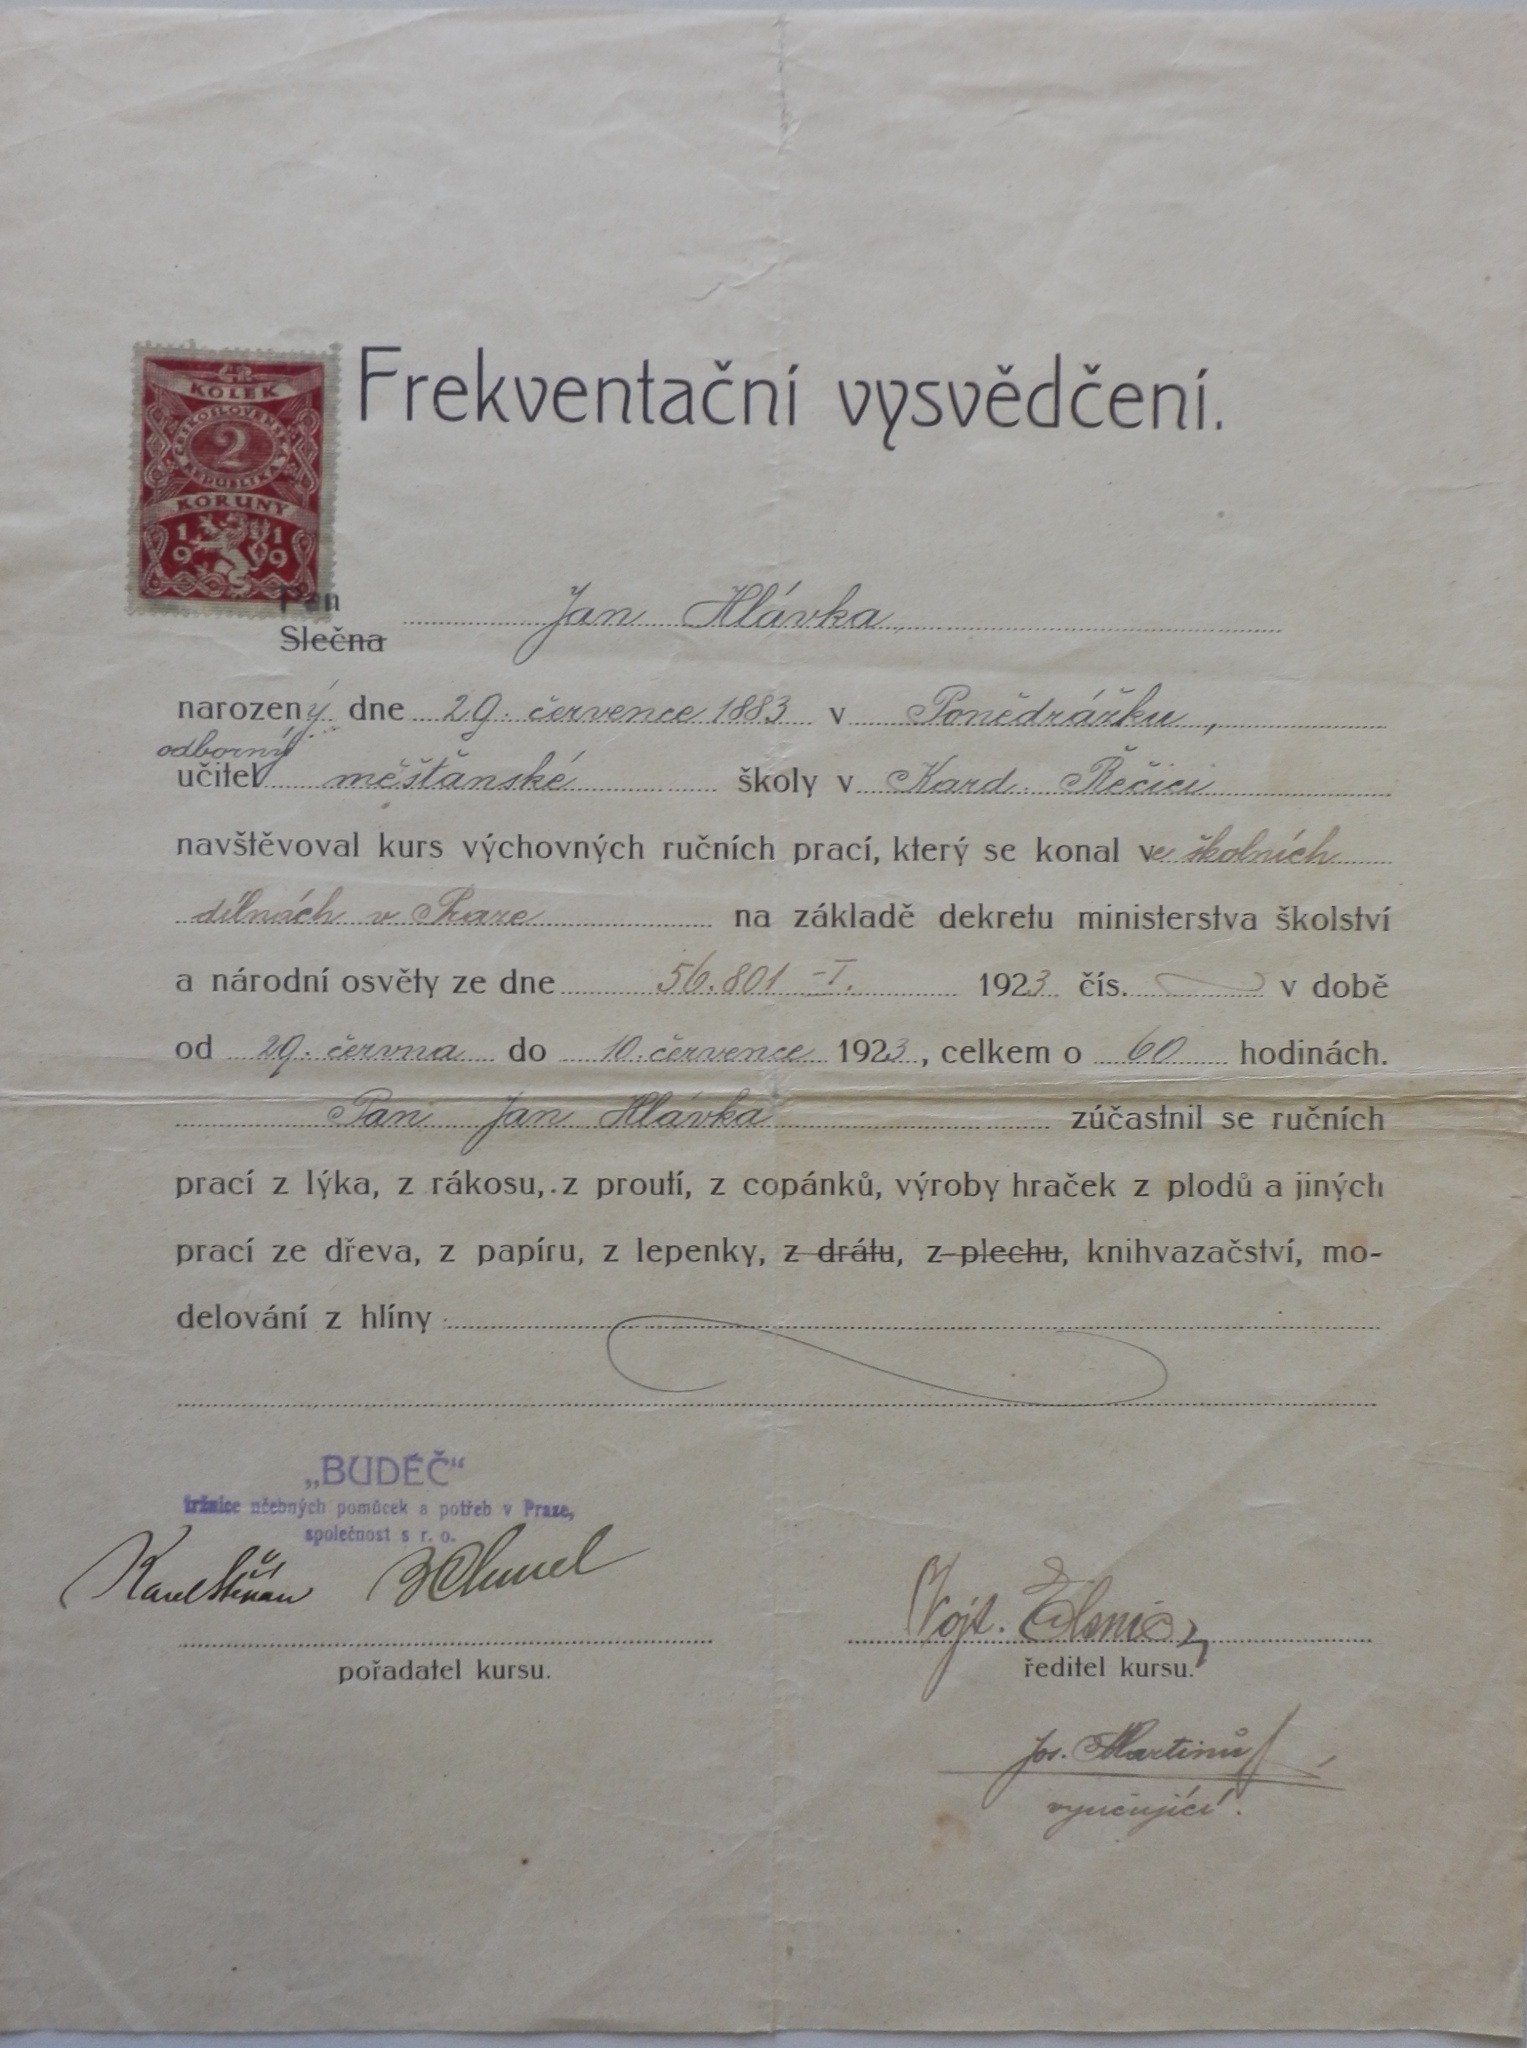 KOLEK
ČESKOSLOVENSKÁ
2
REPUBLIKA
KORUNY
1919
Frekventační vysvědčení.
Pan
Slečna
Jan Hlávka
narozený dne 29. července 1883 v Ponědrážku,
odborný
učitel měšťanské školy v Kard. Řečici
navštěvoval kurs výchovných ručních prací, který se konal ve školních
dílnách v Praze na základě dekretu ministerstva školství
a národní osvěty ze dne 56.801 -I. 1923 čís. v době
od 29. června do 10. července 1923, celkem o 60 hodinách.
Pan Jan Hlávka zúčastnil se ručních
prací z lýka, z rákosu, z proutí, z copánků, výroby hraček z plodů a jiných
prací ze dřeva, z papíru, z lepenky, z drátu, z plechu, knihvazačství, mo-
delování z hlíny
„BUDEČ“
tržnice učebných pomůcek a potřeb v Praze,
společnost s r. o.
Karel
pořadatel kursu.
Vojt.
ředitel kursu.
Jos. Martinů
vyučující.